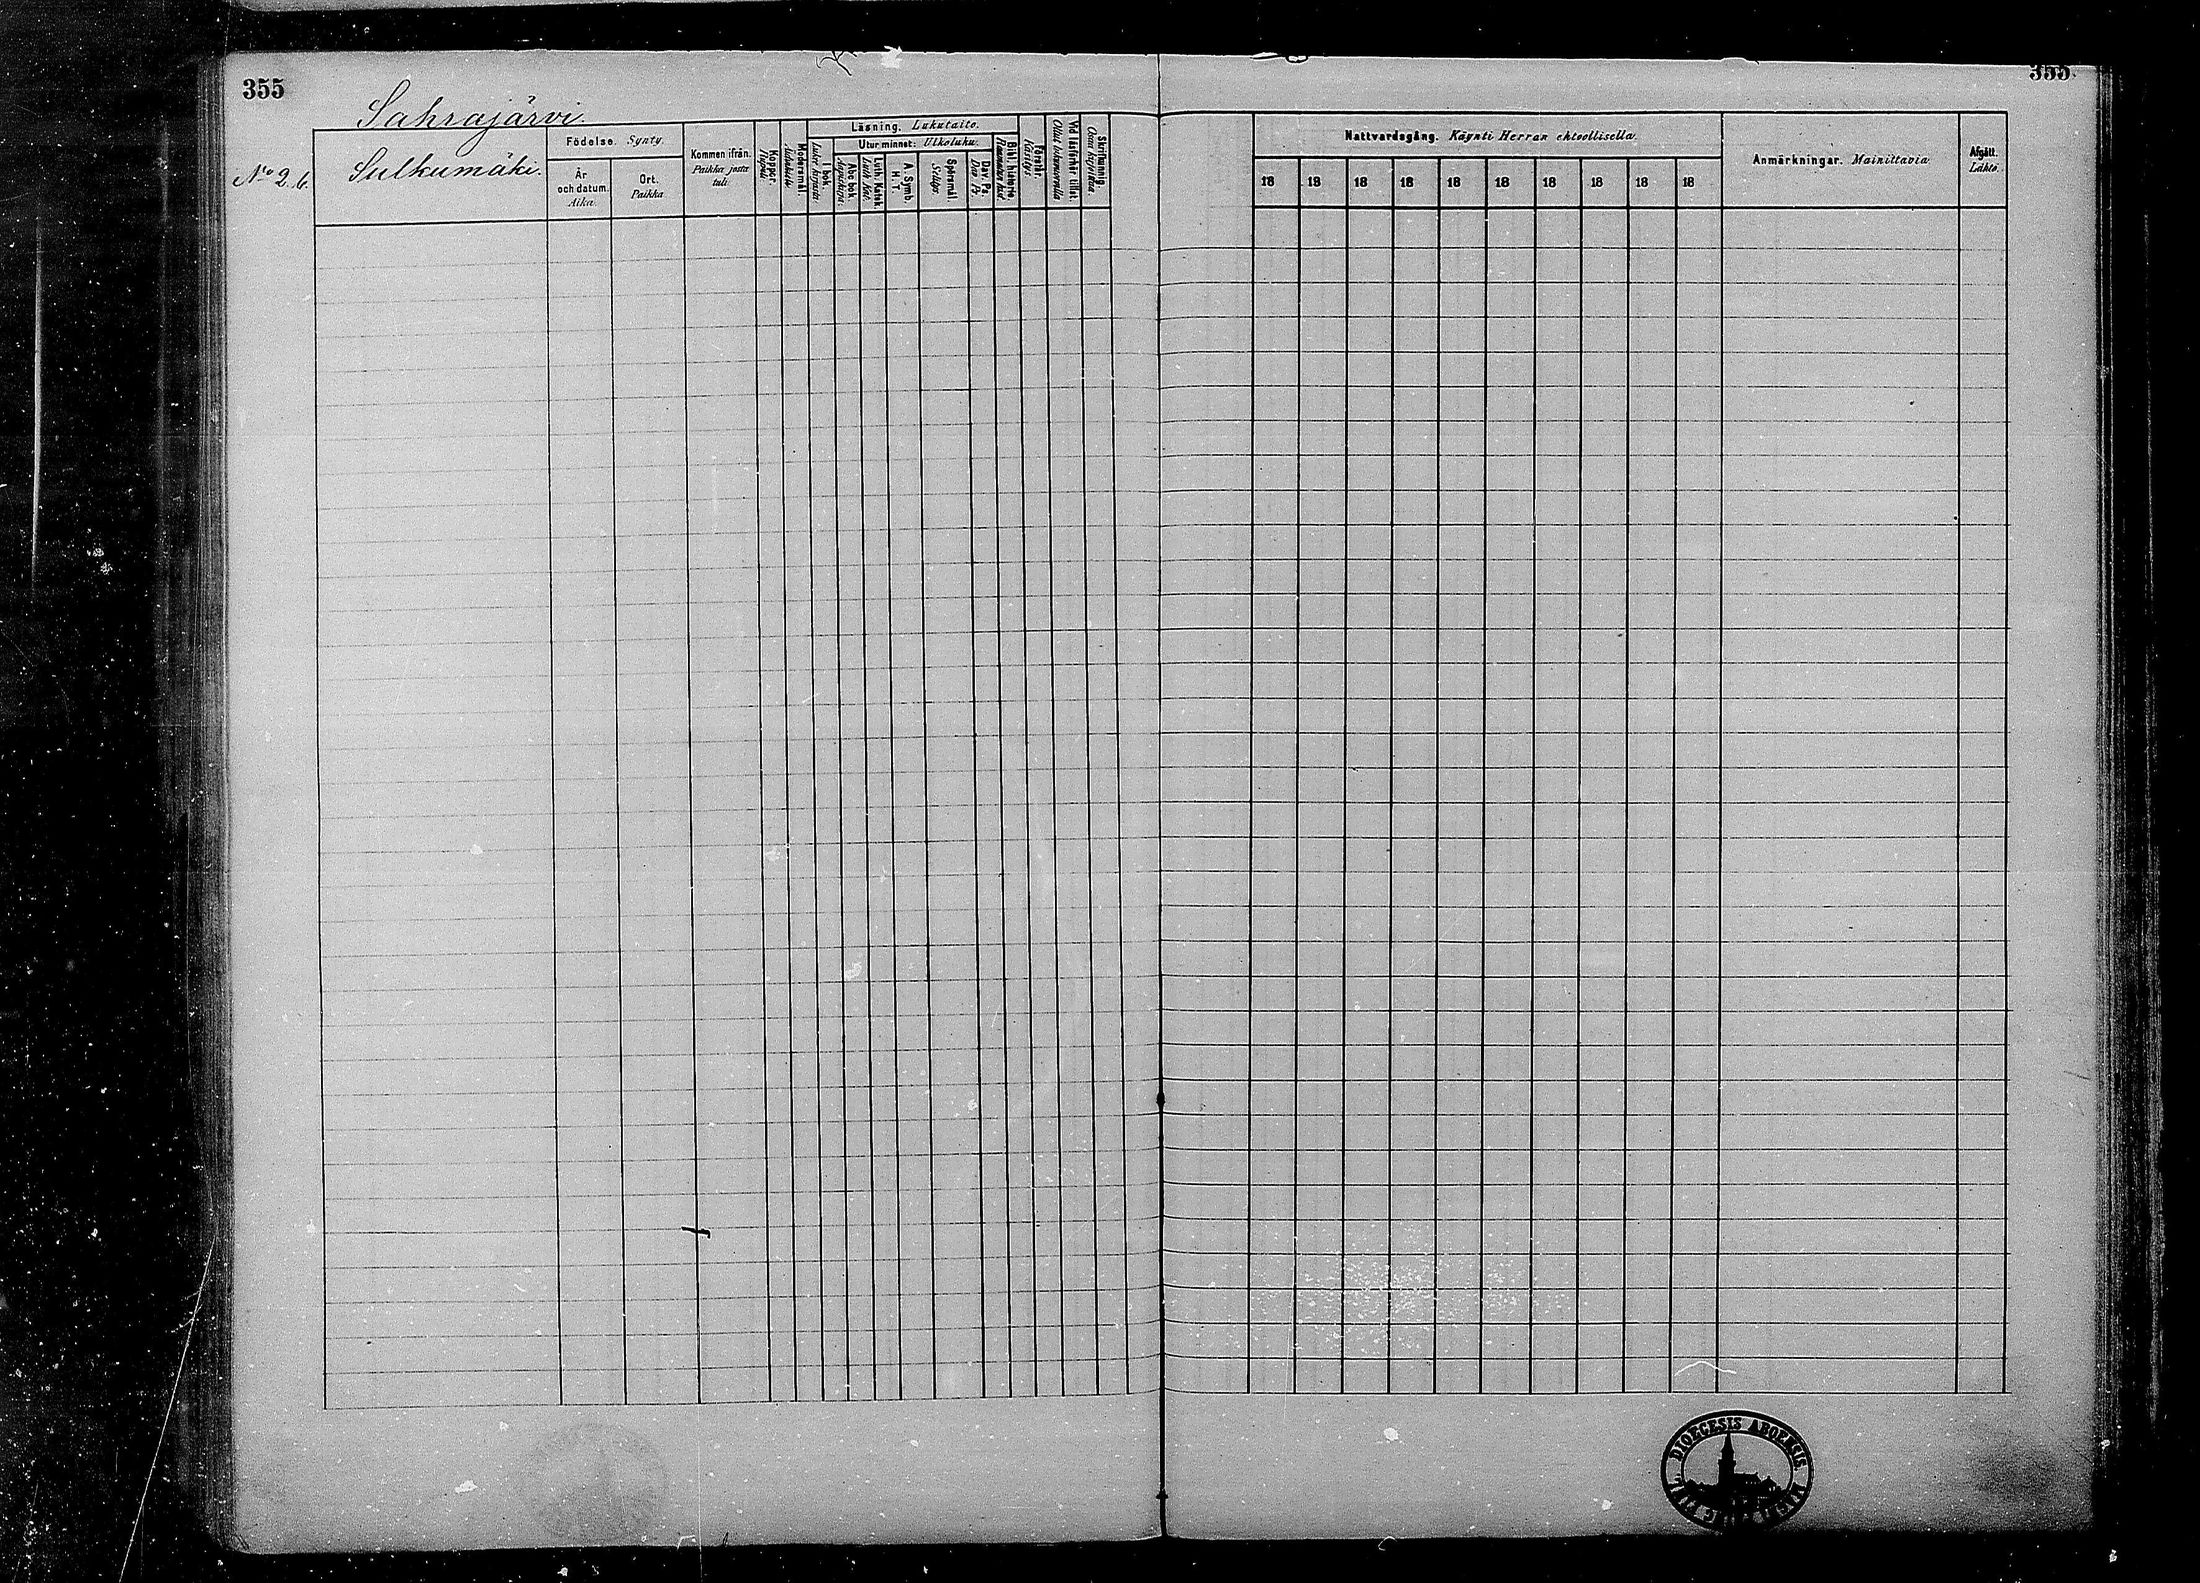 355
355
Sahrajärvi.
No 2.6.
Sulkumäki.
Födelse. Synty.
År och datum. Aika.
Ort. Paikka
Kommen ifrån. Paikka josta tuli.
Koppor. Rupuli
Modersmål.
Läsning. Lukutaito.
I bok.
Utur minnet: Ulkoluku.
Abc bok.
Luth. Katek.
A. Symb. H. T.
Spörsmål.
Dav. Ps. Dav. Ps.
Bibl. historie.
Förstår. Käsitys
Vid läsförhör tillst. Ollut lukuvuorolla
Skrifkunnig. Osaa kirjoittaa
Nattvardsgång. Käynti Herran ehtoollisella.
18 18 18 18 18 18 18 18 18 18
Anmärkningar. Mainittavia.
Afgått. Lähtö.
DIOECESIS ABOENSIS